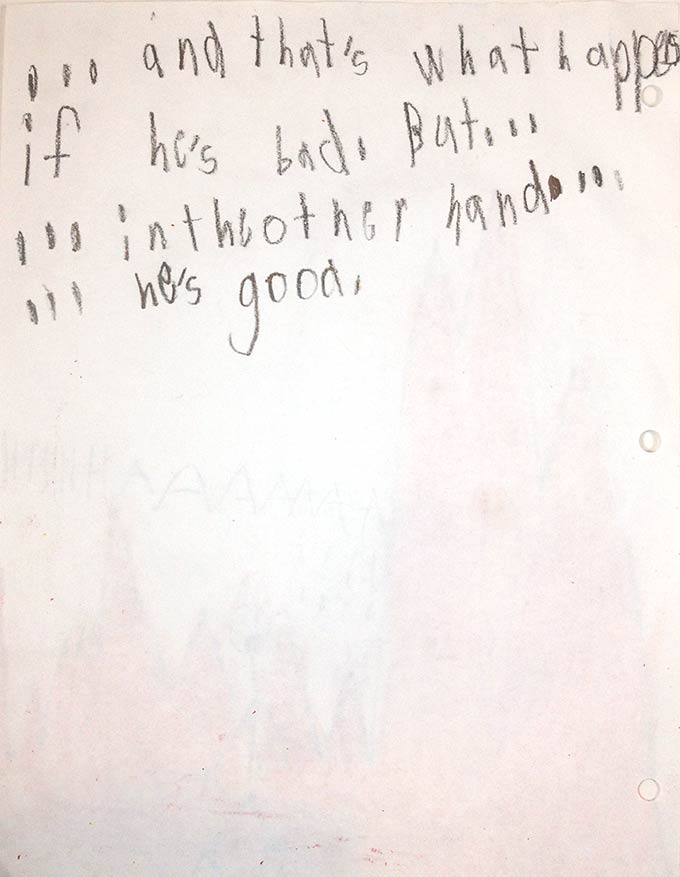 ... and that's what happens
if he's bad. But...
... in the other hand....
... he's good.